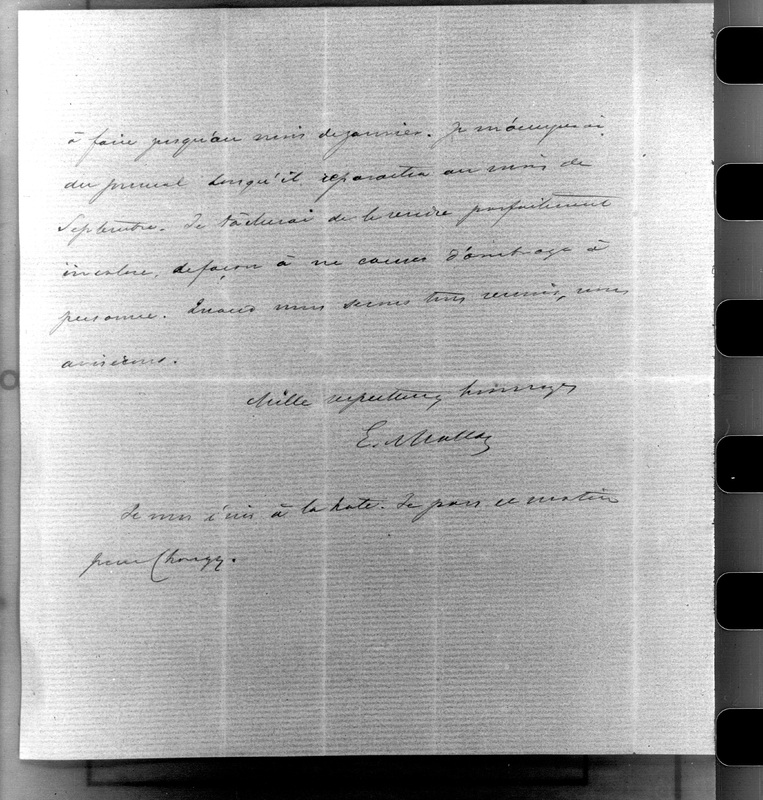 à faire jusqu'au mois de janvier. Je m'occuperai
du journal lorsqu'il reparaitra au mois de
Septembre. Je tâcherai de le rendre parfaitement
incolore, de façon à ne causer d'ombrage à
personne. Quand nous serons tous réunis, nous
aviserons.
Mille respectueux hommages
E.
Je vous écris à la hate. Je pars ce matin
pour